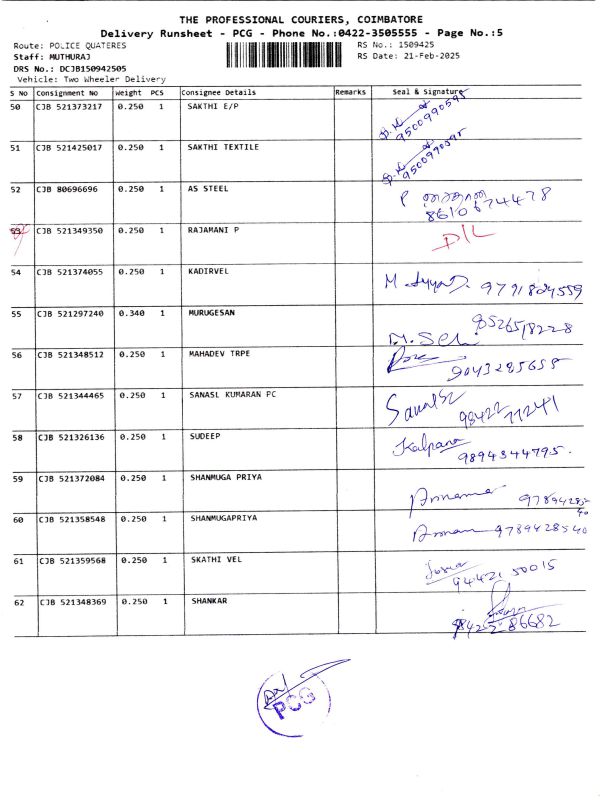 THE PROFESSIONAL COURIERS, COIMBATORE
Delivery Runsheet - PCG - Phone No.:0422-3505555 - Page No.:5
Route: POLICE QUATERES
RS No.: 1509425
Staff: MUTHURAJ
RS Date: 21-Feb-2025
DRS No.: DCJB150942505
Vehicle: Two Wheeler Delivery
S No Consignment No Weight PCS Consignee Details Remarks Seal & Signature
50 CJB 521373217 0.250 1 SAKTHI E/P 9500990595
51 CJB 521425017 0.250 1 SAKTHI TEXTILE 9500990595
52 CJB 80696696 0.250 1 AS STEEL P
8610674478
53 CJB 521349350 0.250 1 RAJAMANI P D/L
54 CJB 521374055 0.250 1 KADIRVEL M 9791824559
55 CJB 521297240 0.340 1 MURUGESAN 8526518228
56 CJB 521348512 0.250 1 MAHADEV TRPE
9043285655
57 CJB 521344465 0.250 1 SANASL KUMARAN PC
98422 77241
58 CJB 521326136 0.250 1 SUDEEP Kalpana
9894344795.
59 CJB 521372084 0.250 1 SHANMUGA PRIYA
97894285
40
60 CJB 521358548 0.250 1 SHANMUGAPRIYA 9789428540
61 CJB 521359568 0.250 1 SKATHI VEL
94421 50015
62 CJB 521348369 0.250 1 SHANKAR
86682
PCG